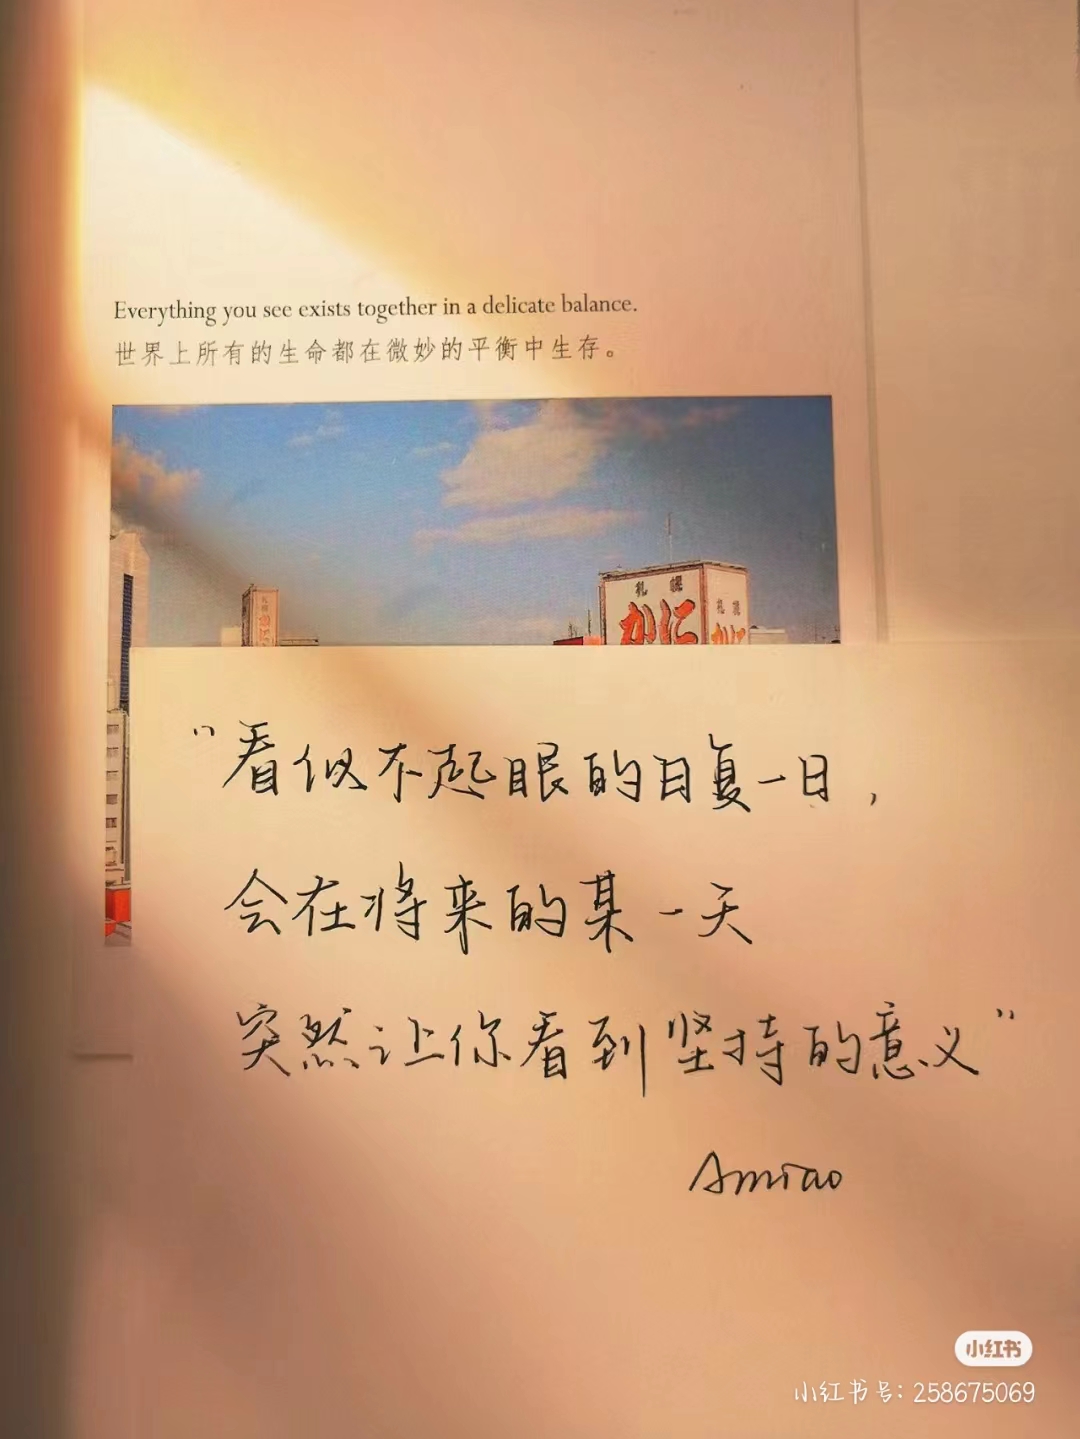 Everything you see exists together in a delicate balance.
世界上所有的生命都在微妙的平衡中生存。
札幌
かに
札幌
かに
札幌
かに
“看似不起眼的日复一日，
会在将来的某一天
突然让你看到坚持的意义”
Amiao
小红书
小红书号：258675069